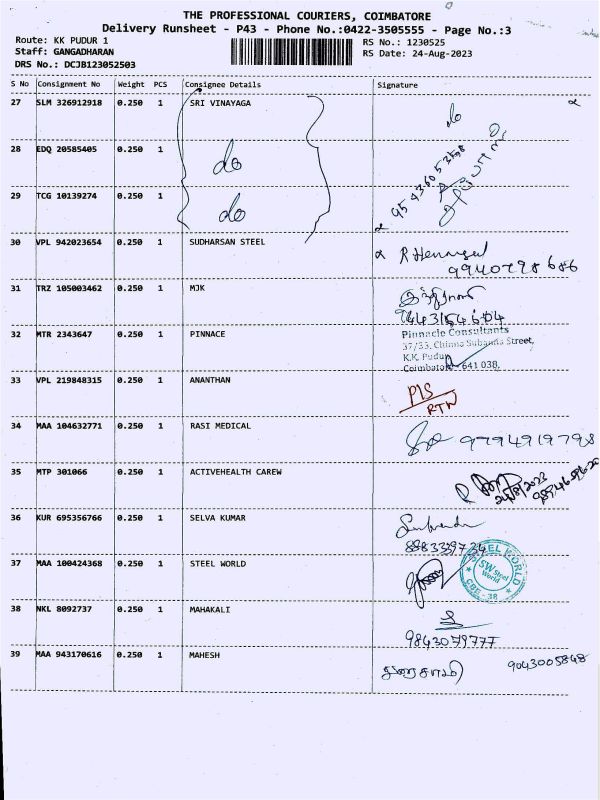 THE PROFESSIONAL COURIERS, COIMBATORE
Delivery Runsheet - P43 - Phone No.:0422-3505555 - Page No.:3
Route: KK PUDUR 1
RS No.: 1230525
Staff: GANGADHARAN
RS Date: 24-Aug-2023
DRS No.: DCJB123052503
S No Consignment No Weight PCS Consignee Details Signature
27 SLM 326912918 0.250 1 SRI VINAYAGA do
28 EDQ 20585405 0.250 1 do
29 TCG 10139274 0.250 1 do
30 VPL 942023654 0.250 1 SUDHARSAN STEEL
9940798686
31 TRZ 105003462 0.250 1 MJK
32 MTR 2343647 0.250 1 PINNACE Pinnacle Consultants
37/33, Chinna Subanda Street,
K.K. Pudur
Coimbatore 641 038.
33 VPL 219848315 0.250 1 ANANTHAN P/S
RTN
34 MAA 104632771 0.250 1 RASI MEDICAL 9794919798
35 MTP 301066 0.250 1 ACTIVEHEALTH CAREW
24/8/2023
36 KUR 695356766 0.250 1 SELVA KUMAR
37 MAA 100424368 0.250 1 STEEL WORLD STEEL WORLD
SW Steel World
CBE - 38
38 NKL 8092737 0.250 1 MAHAKALI
9843079777
39 MAA 943170616 0.250 1 MAHESH 9043005848